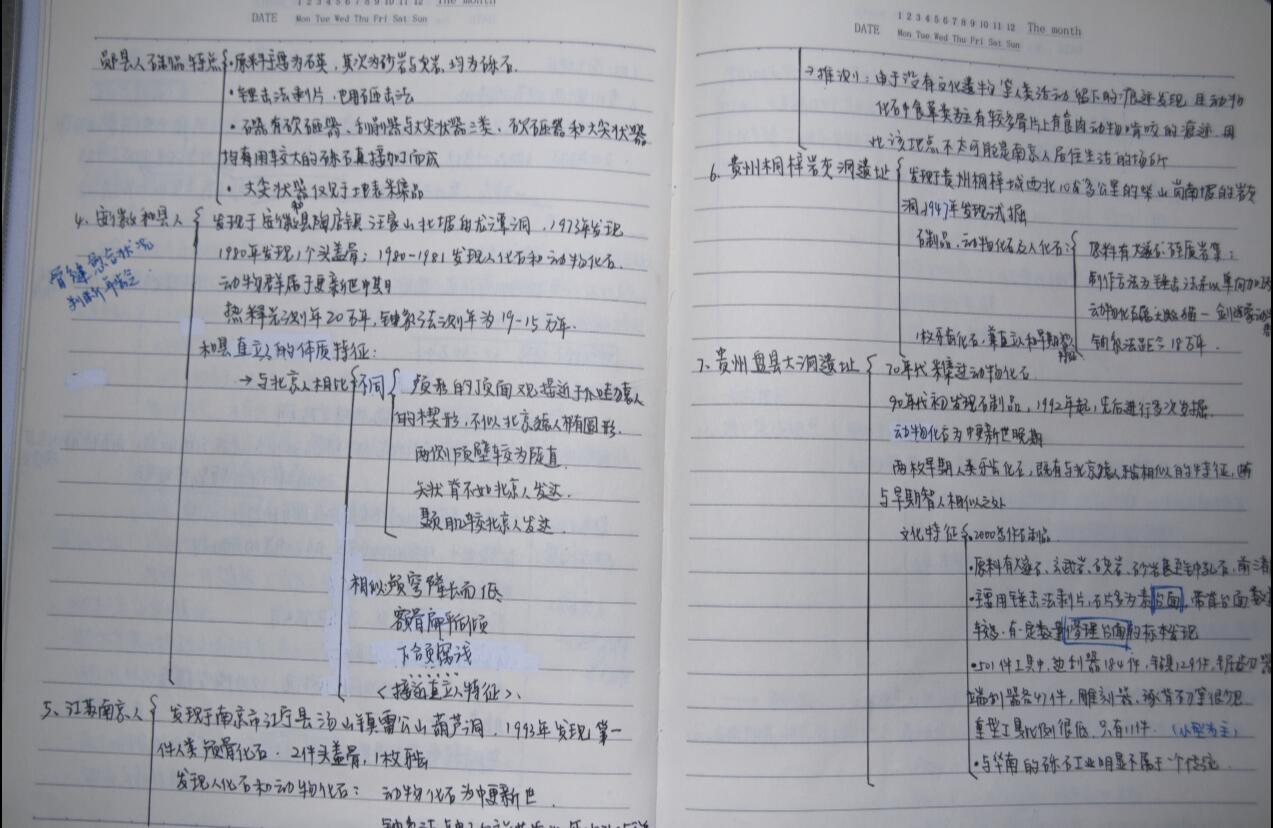 1 2 3 4 5 6 7 8 9 10 11 12 The month
DATE Mon Tue Wed Thu Fri Sat Sun
郧县人石制品特点 · 原料主要为石英，其次为砂岩与灰岩，均为砾石.
· 锤击法剥片，也用砸击法
· 石器有砍砸器、刮削器与大尖状器三类，砍砸器和大尖状器
均直接用较大的砾石直接加工而成
· 大尖状器仅见于地表采集品
4. 安徽和县人 发现于安徽和县陶店镇汪家山北坡的龙潭洞，1973年发现
1980年发现1个头盖骨；1980-1981发现人化石和动物化石.
骨缝愈合状况
判断年龄
动物群属于更新世中期
热释光测年20万年，铀系法测年为19-15万年.
和县直立人的体质特征：
→与北京人相比 不同 颅表的顶面观接近于爪哇猿人
的楔形，不似北京猿人稍有圆形.
两侧顶壁较为陡直.
矢状脊不如北京人发达.
颞肌较北京人发达.
相似 颅穹隆长而低
额骨扁平后倾
下颌
<接近直立人特征>.
5、江苏南京人 发现于南京市江宁县汤山镇雷公山葫芦洞，1993年发现第一
件人类颅骨化石. 2件头盖骨，1枚
发现人化石和动物化石： 动物化石为中更新世
1 2 3 4 5 6 7 8 9 10 11 12 The month
DATE Mon Tue Wed Thu Fri Sat Sun
→推测：由于没有文化遗物等人类活动留下的痕迹发现，且动物
化石中食草类为主有较多骨片上有食肉动物啃咬的痕迹，因
此该地点不大可能是南京人居住生活的场所
6. 贵州桐梓岩灰洞遗址 发现于贵州桐梓城西北10多公里的柴山岗南坡的岩灰
洞，1947年发现试掘
石制品、动物化石及人化石： 原料有火燧石硅质岩等；
制作方法为锤击法并以单向加工
动物化石属大熊猫—剑齿象动物
1枚牙齿化石，兼直立和早期 铀系法距今18万年.
7、贵州盘县大洞遗址 70年代采集过动物化石.
90年代初发现石制品，1992年起，先后进行多次发掘.
动物化石为中更新世晚期
两枚早期人类牙齿化石，既有与北京猿人相似的特征，
与早期智人相似之处
文化特征 · 2000多件石制品.
· 原料有燧石、玄武岩、灰岩、
· 主要用锤击法剥片，石片多为素台面，带脊台面数
较多. 有一定数量修理台面的标本发现
· 501件工具中，边刮器184件，
端刮器各47件，雕刻器、
重型工具比例很低，只有11件. （小型为主）
· 与华南的砾石工业明显不属于一个传统.